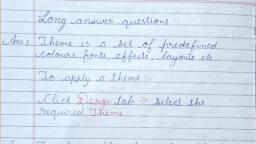 Long answer questions :-
Ans: Theme is a set of predefined
colours, fonts, effects, layouts etc
To apply a theme :-
Click Design tab → select the
required Theme